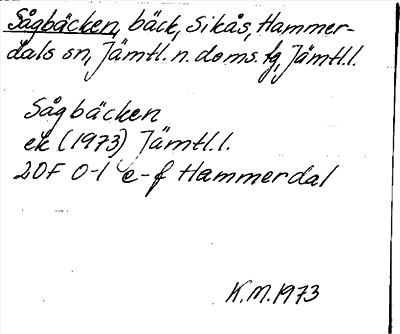 Sågbäcken, bäck, Sikås, Hammer-
dals sn, Jämtl. n. doms. tg, Jämtl.l.
Sågbäcken
ek (1973) Jämtl.l.
20F 0-1 e-f Hammerdal
K.M. 1973